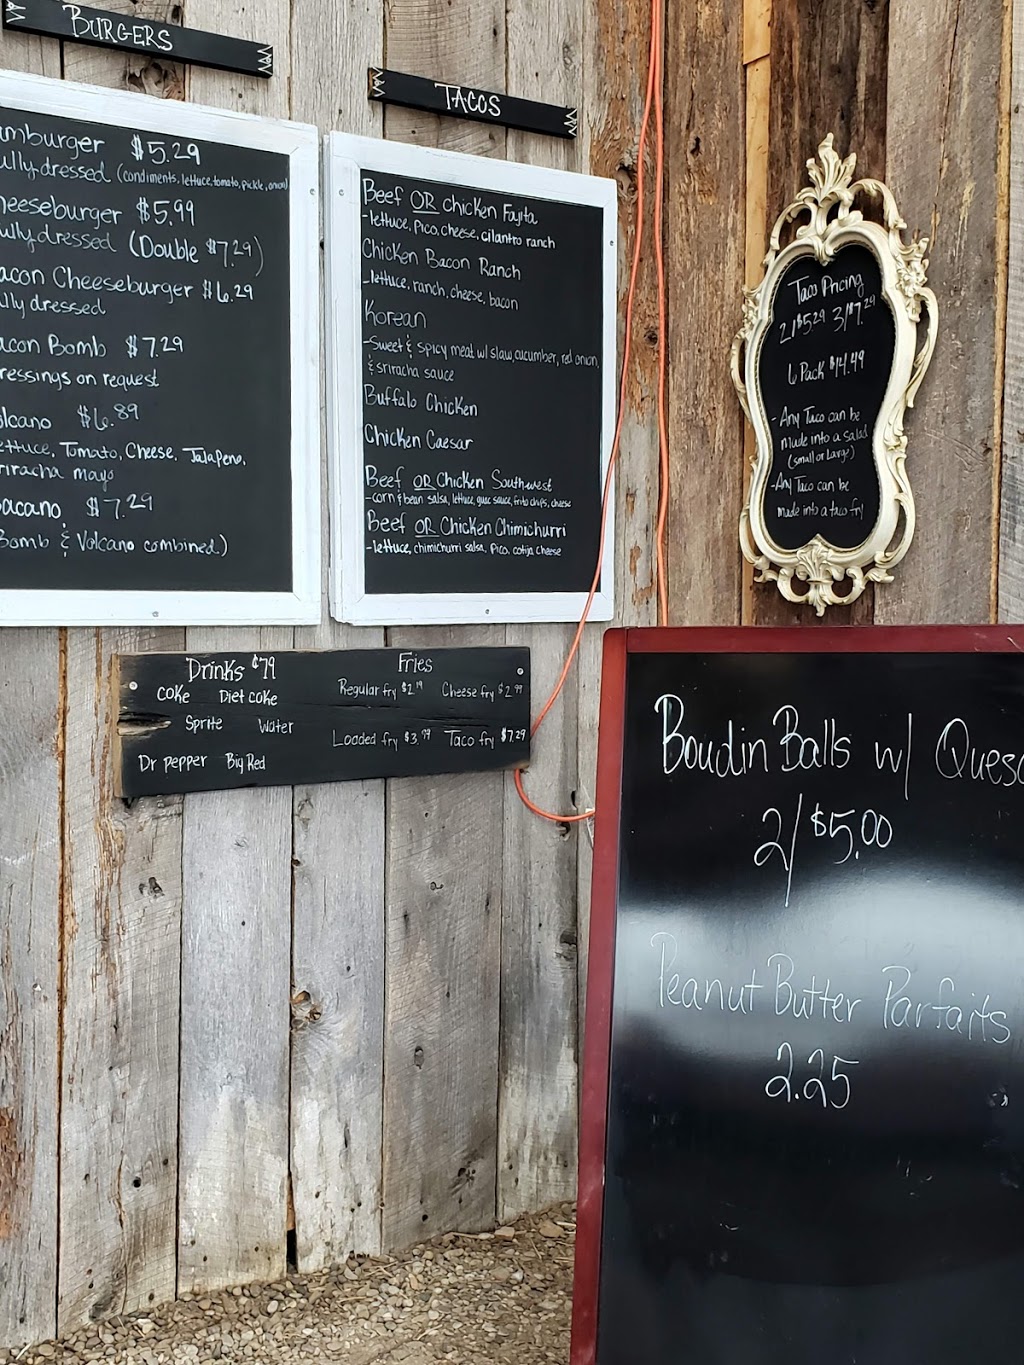 BURGERS
amburger $5.29
ully dressed (condiments, lettuce, tomato, pickle, onion)
heeseburger $5.99
ully dressed (Double $7.29)
acon Cheeseburger $6.29
lly dressed
acon Bomb $7.29
ressings on request
olcano $6.89
ettuce, Tomato, Cheese, Jalapeno,
riracha mayo
acano $7.29
Bomb & Volcano combined)
TACOS
Beef OR chicken Fajita
-lettuce, Pico, cheese, cilantro ranch
Chicken Bacon Ranch
-lettuce, ranch, cheese, bacon
Korean
-Sweet & spicy meat w/ slaw, cucumber, red onion,
& sriracha sauce
Buffalo Chicken
Chicken Caesar
Beef OR Chicken Southwest
-corn & bean salsa, lettuce, guac sauce, frito chips, cheese
Beef OR Chicken Chimichurri
-lettuce, chimichurri salsa, Pico, cotija cheese
Taco Pricing
2/$5.29 3/$7.29
6 Pack $14.49
- Any Taco can be
made into a salad
(small or Large)
-Any Taco can be
made into a taco fry
Drinks $.79
coke Diet coke
Sprite Water
Dr pepper Big Red
Fries
Regular fry $2.19 Cheese fry $2.99
Loaded fry $3.99 Taco fry $7.29
Boudin Balls w/ Queso
2/$5.00
Peanut Butter Parfaits
2.25